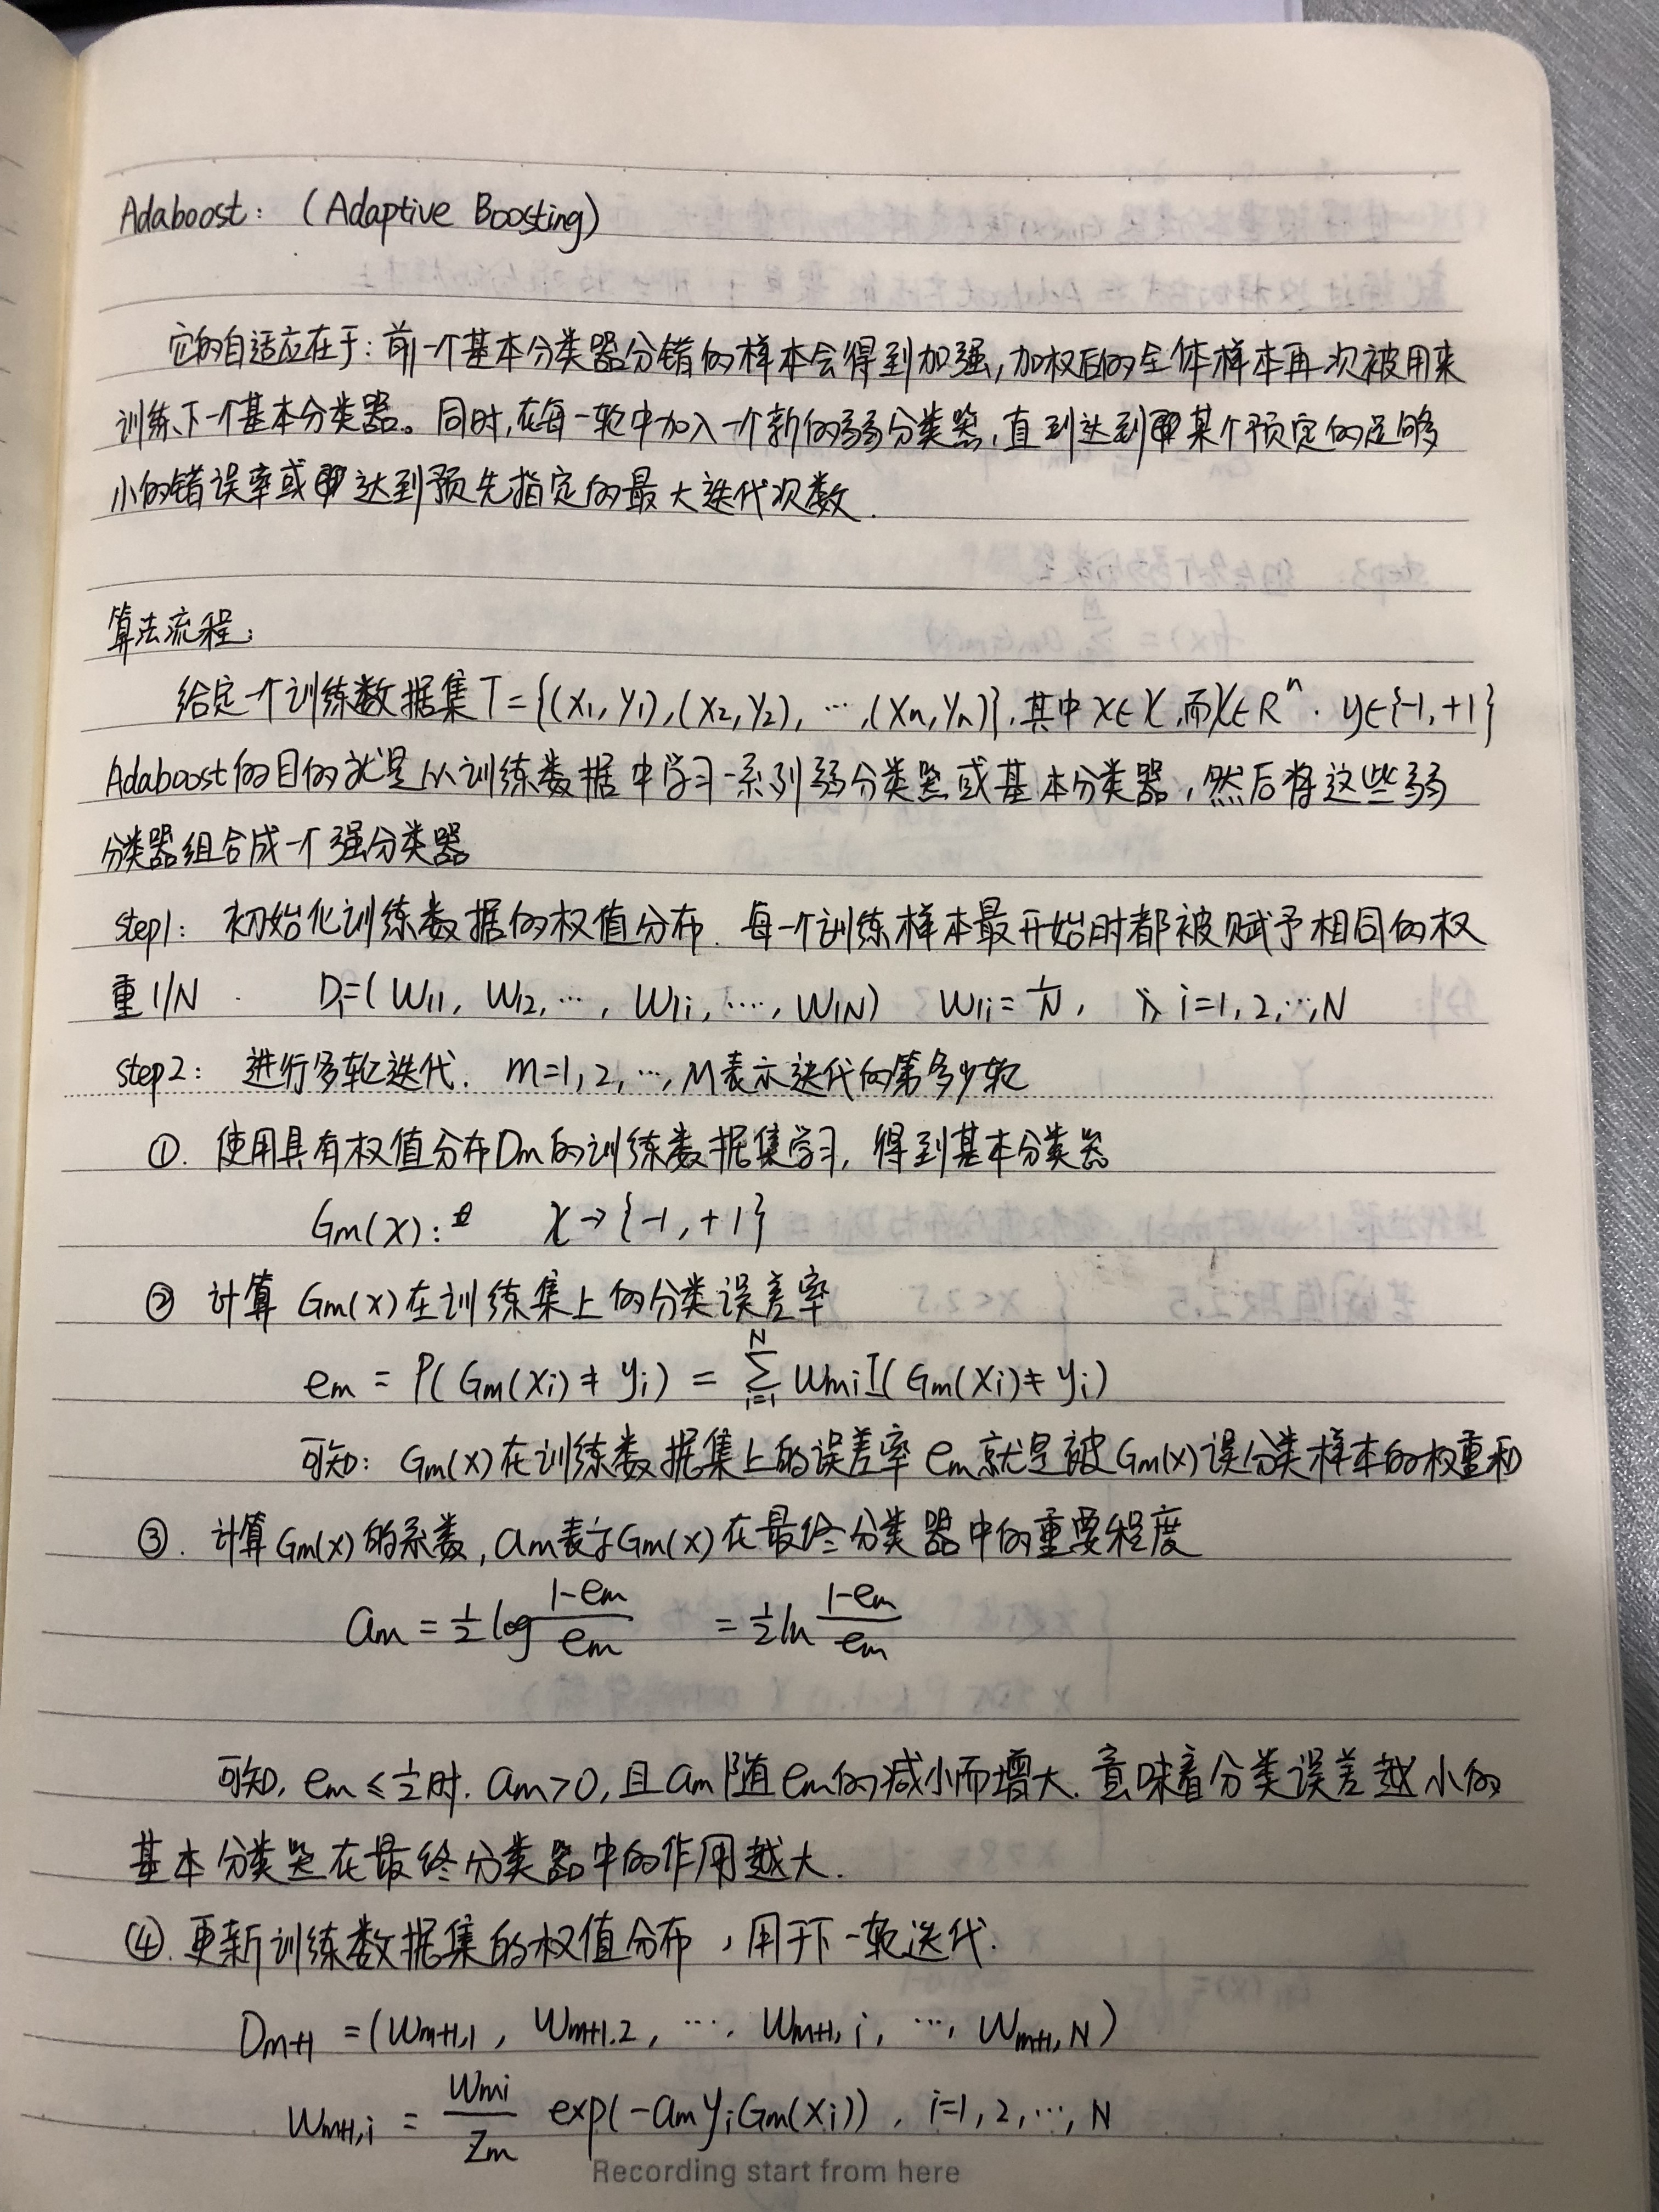 Adaboost: (Adaptive Boosting)
它的自适应在于:前一个基本分类器分错的样本会得到加强,加权后的全体样本再次被用来
训练下一个基本分类器。同时,在每一轮中加入一个新的弱分类器,直到达到某个预定的足够
小的错误率或达到预先指定的最大迭代次数.
算法流程:
给定一个训练数据集T={(x1,y1),(x2,y2),…,(xn,yn)},其中x∈χ,而χ∈Rⁿ. y∈{-1,+1}
Adaboost的目的就是从训练数据中学习一系列弱分类器或基本分类器,然后将这些弱
分类器组合成一个强分类器
step1: 初始化训练数据的权值分布. 每一个训练样本最开始时都被赋予相同的权
重1/N . D1=(W11, W12,…, W1i,…, W1N) W1i=1/N, i=1,2,…,N
step2: 进行多轮迭代. m=1,2,…,M表示迭代的第多少轮
①. 使用具有权值分布Dm的训练数据集学习,得到基本分类器
Gm(x): χ→{-1,+1}
② 计算 Gm(x)在训练集上的分类误差率
em = P(Gm(xi)≠yi) = Σ_{i=1}^{N} Wmi I(Gm(xi)≠yi)
可知: Gm(x)在训练数据集上的误差率em就是被Gm(x)误分类样本的权重和
③. 计算Gm(x)的系数,am表示Gm(x)在最终分类器中的重要程度
am = 1/2 log (1-em)/em = 1/2 ln (1-em)/em
可知, em≤1/2时. am>0,且am随em的减小而增大. 意味着分类误差越小的
基本分类器在最终分类器中的作用越大.
④. 更新训练数据集的权值分布,用于下一轮迭代.
Dm+1 =(Wm+1,1, Wm+1.2, …, Wm+1,i, …, Wm+1,N)
Wm+1,i = Wmi/Zm exp(-am yi Gm(xi)), i=1,2,…,N
Recording start from here